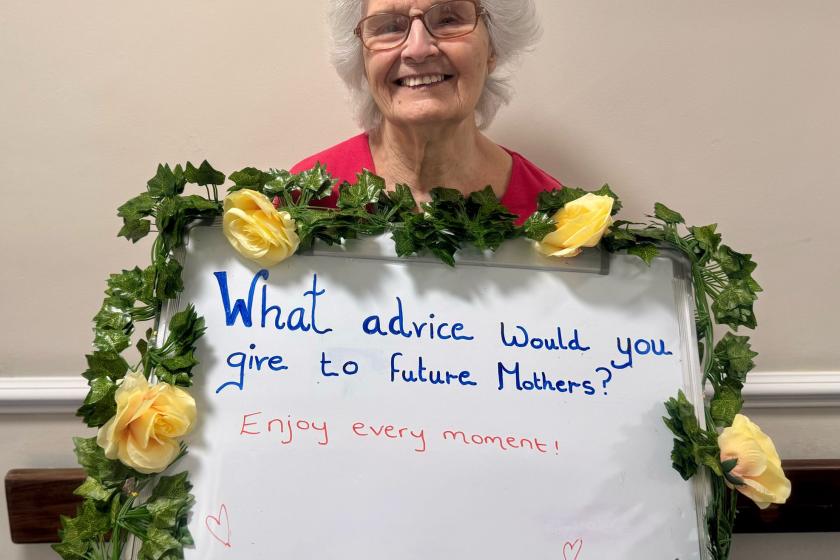 What advice would you
give to future Mothers?
Enjoy every moment!